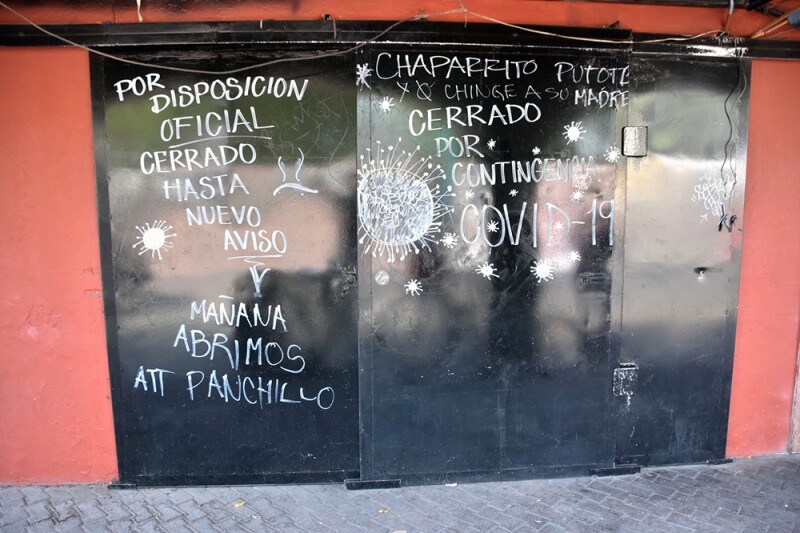 POR
DISPOSICION
OFICIAL
CERRADO
HASTA
NUEVO
AVISO
MAÑANA
ABRIMOS
ATT PANCHILLO
CHAPARRITO PUTOTE
X Q CHINGE A SU MADRE
CERRADO
POR
CONTINGENCIA
COVID-19